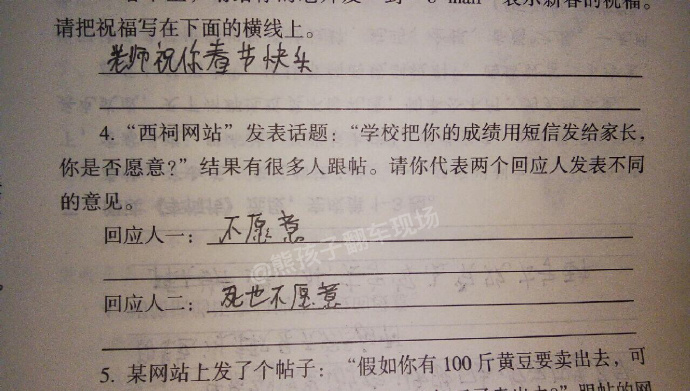 请把祝福写在下面的横线上。
老师祝你春节快乐
4. “西祠网站”发表话题：“学校把你的成绩用短信发给家长，
你是否愿意？”结果有很多人跟帖。请你代表两个回应人发表不同
的意见。
回应人一：不愿意
@熊孩子翻车现场
回应人二：死也不愿意
5. 某网站上发了个帖子：“假如你有 100 斤黄豆要卖出去，可